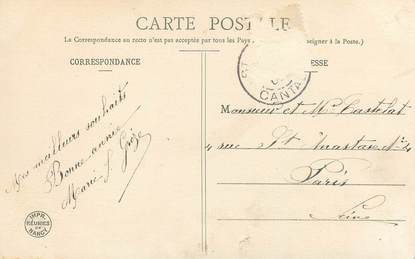 CARTE POSTALE
La Correspondance au recto n'est pas acceptée par tous les Pays (se renseigner à la Poste.)
CORRESPONDANCE
ADRESSE
CANTAL
Mes meilleurs souhaits
Bonne année
Marie S.
Monsieur et Mme Castelat
4 rue St Anastase No 4
Paris
Seine
IMPR.
RÉUNIES
DE
NANCY